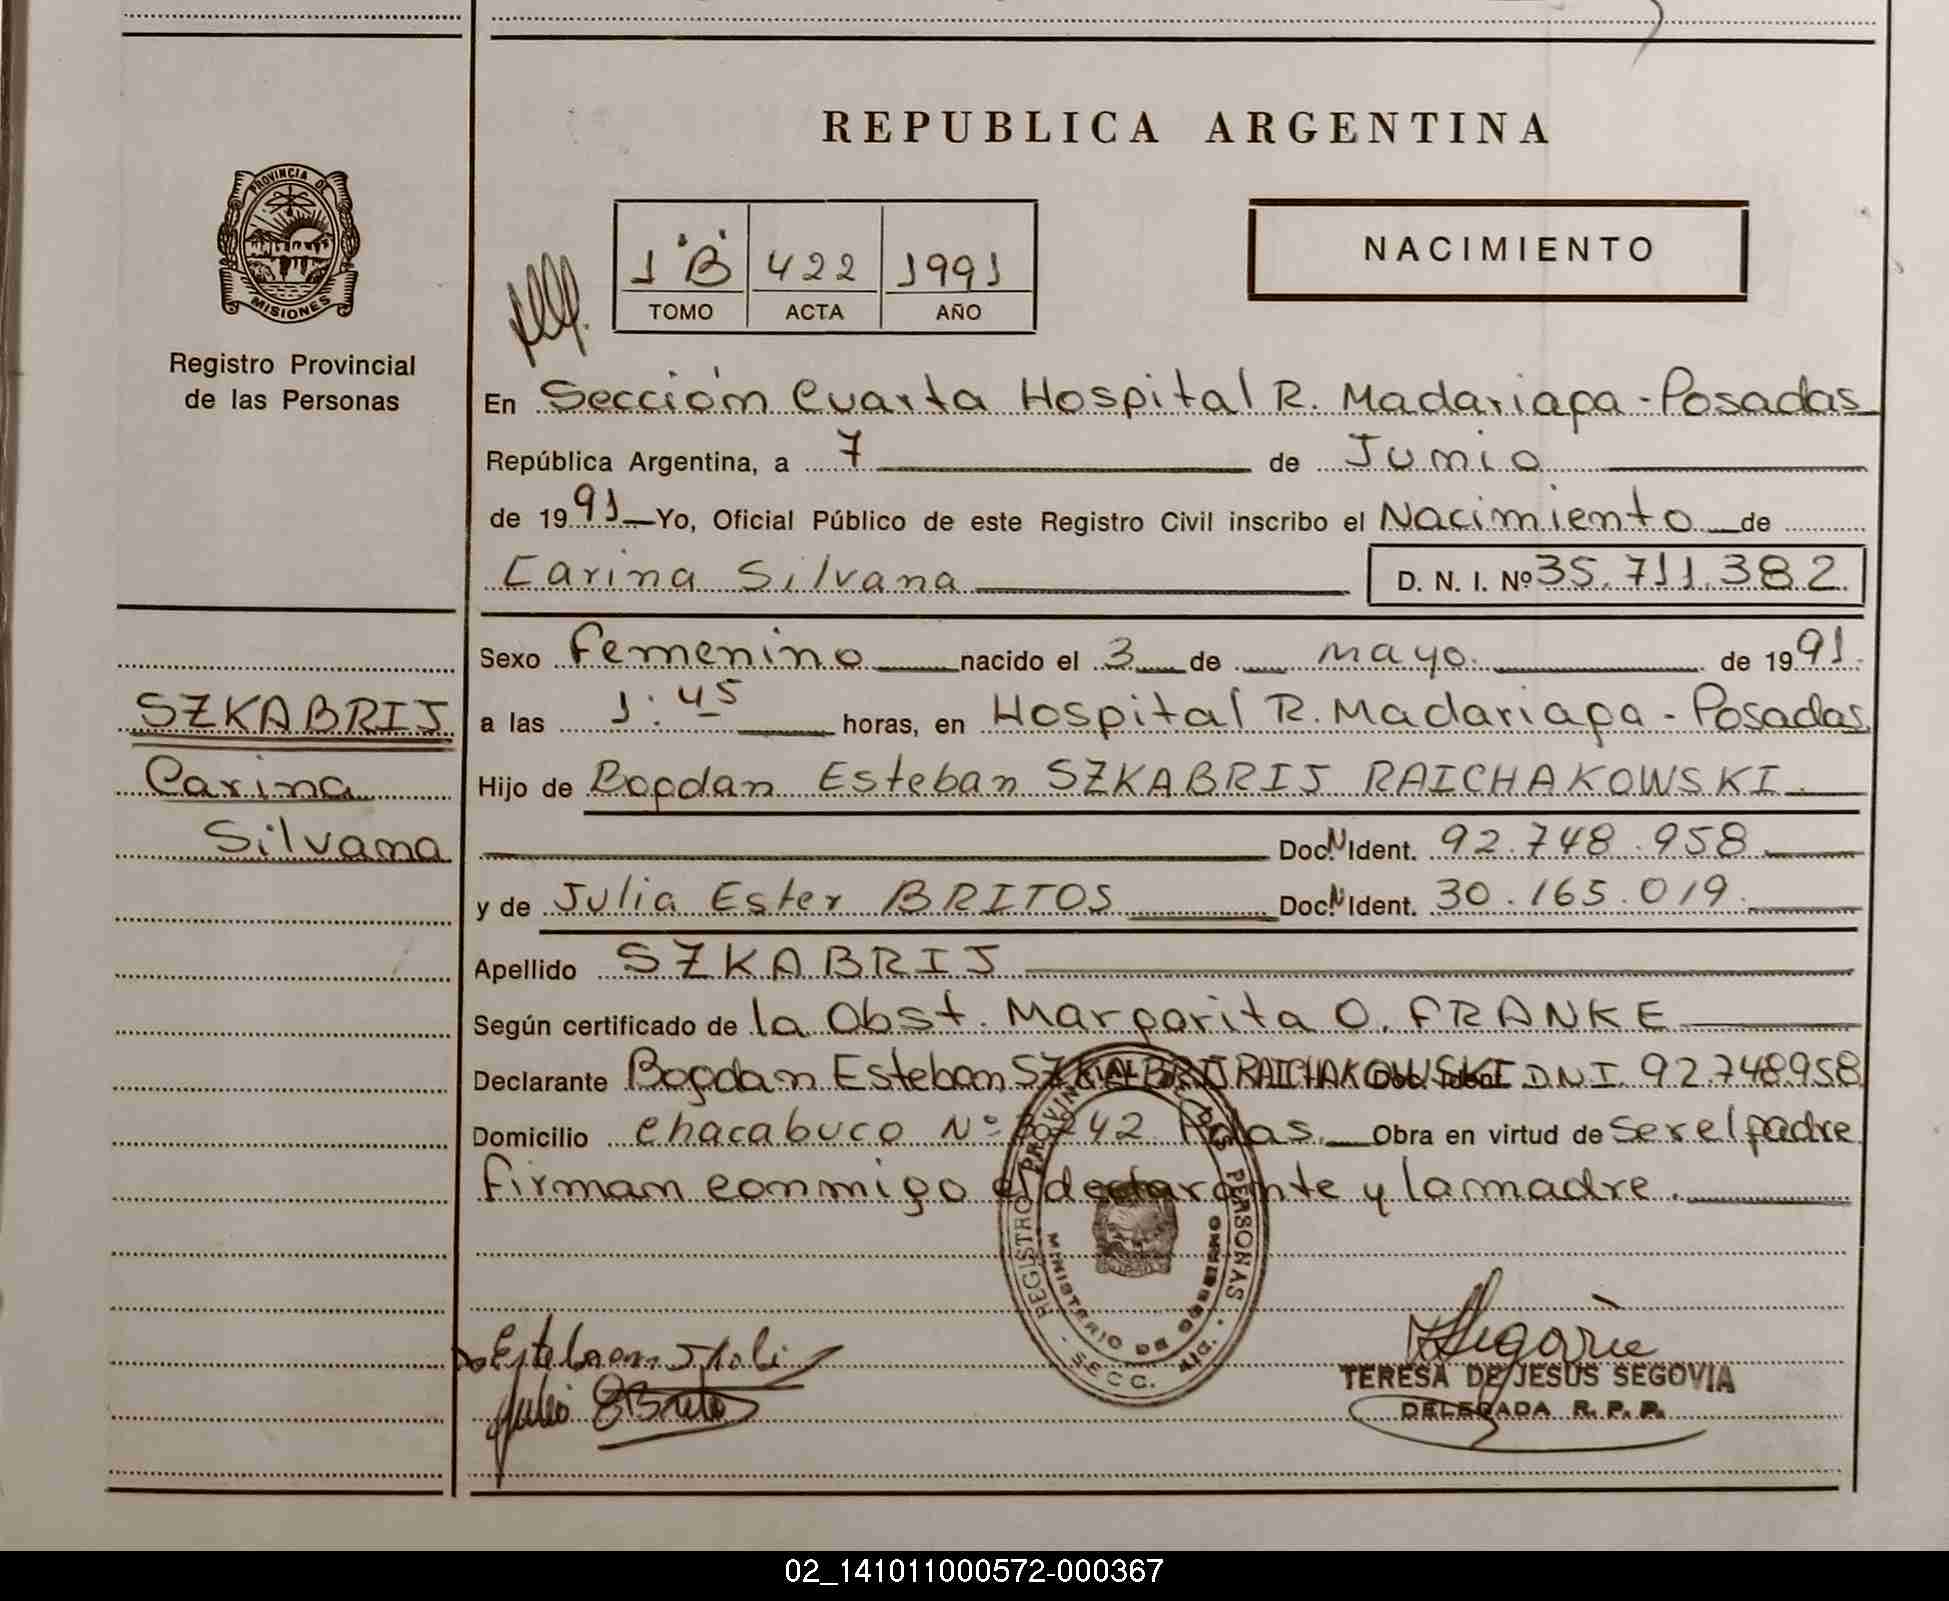 REPUBLICA ARGENTINA
PROVINCIA D.
MISIONES
Registro Provincial
de las Personas
1 "B" 422 1991
TOMO ACTA AÑO
NACIMIENTO
En Sección Cuarta Hospital R. Madariaga - Posadas
República Argentina, a 7 de Junio
de 1991 Yo, Oficial Público de este Registro Civil inscribo el Nacimiento de
Carina Silvana D. N. I. Nº 35.711.382
Sexo Femenino nacido el 3 de mayo de 1991
SZKABRIJ
Carina
Silvana
a las 1:45 horas, en Hospital R. Madariaga - Posadas
Hijo de Bogdan Esteban SZKABRIJ RAICHAKOWSKI
Doc. N Ident. 92.748.958
y de Julia Ester BRITOS Doc. N Ident. 30.165.019
Apellido SZKABRIJ
Según certificado de la Obst. Margarita O. FRANKE
Declarante Bogdan Esteban SZKABRIJ RAICHAKOWSKI DNI 92.748958
Domicilio Chacabuco Nº 42 Pdas. Obra en virtud de Ser el padre
firman conmigo el declarante y la madre.
REGISTRO PROVINCIAL DE LAS PERSONAS
MINISTERIO DE GOBIERNO
SECC. 4ta.
TERESA DE JESUS SEGOVIA
DELEGADA R. P. P.
02_141011000572-000367